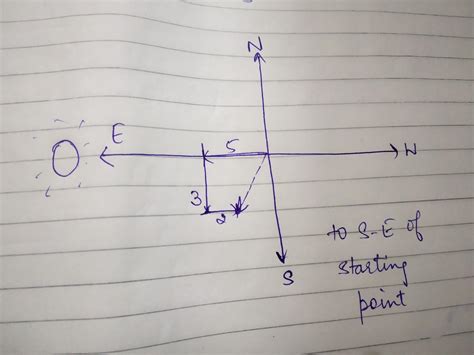 N
E
5
W
3
2
S
to S-E of
starting
point